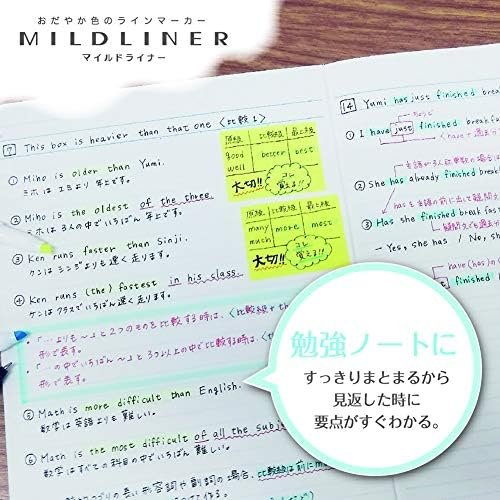 おだやか色のラインマーカー
MILDLINER
マイルドライナー
7 This box is heavier than that one 〈比較1〉
① Miho is older than Yumi.
ミホはユミより年上です。
② Miho is the oldest of the three.
ミホは3人の中でいちばん年上です。
③ Ken runs faster than Sinji.
ケンはシンジよりも速く走ります。
④ Ken runs (the) fastest in his class.
ケンはクラスでいちばん速く走ります。
・「…よりも～」と2つのものを比較する時は、〈比較級+th
形で表す。
・「…の中でいちばん～」と3つ以上の中で比較する時は、〈th
形で表す。
⑤ Math is more difficult than English.
数学は英語よりも難しい。
⑥ Math is the most difficult of all the subje
数学はすべての科目の中でいちばん難しい。
つづりの長い形容詞や副詞の場合、比較級は前にm
原級 比較級 最上級
good
well better best
大切!! コレ覚える!!
原級 比較級 最上級
many
much more most
大切!! コレ覚える!!
14 Yumi has just finished breakfa
① I have just finished breakfa
② She has already finished breakf
③ Has she finished breakf
- Yes, she has / No, sh
have(has)
finished
勉強ノートに
すっきりまとまるから
見返した時に
要点がすぐわかる。